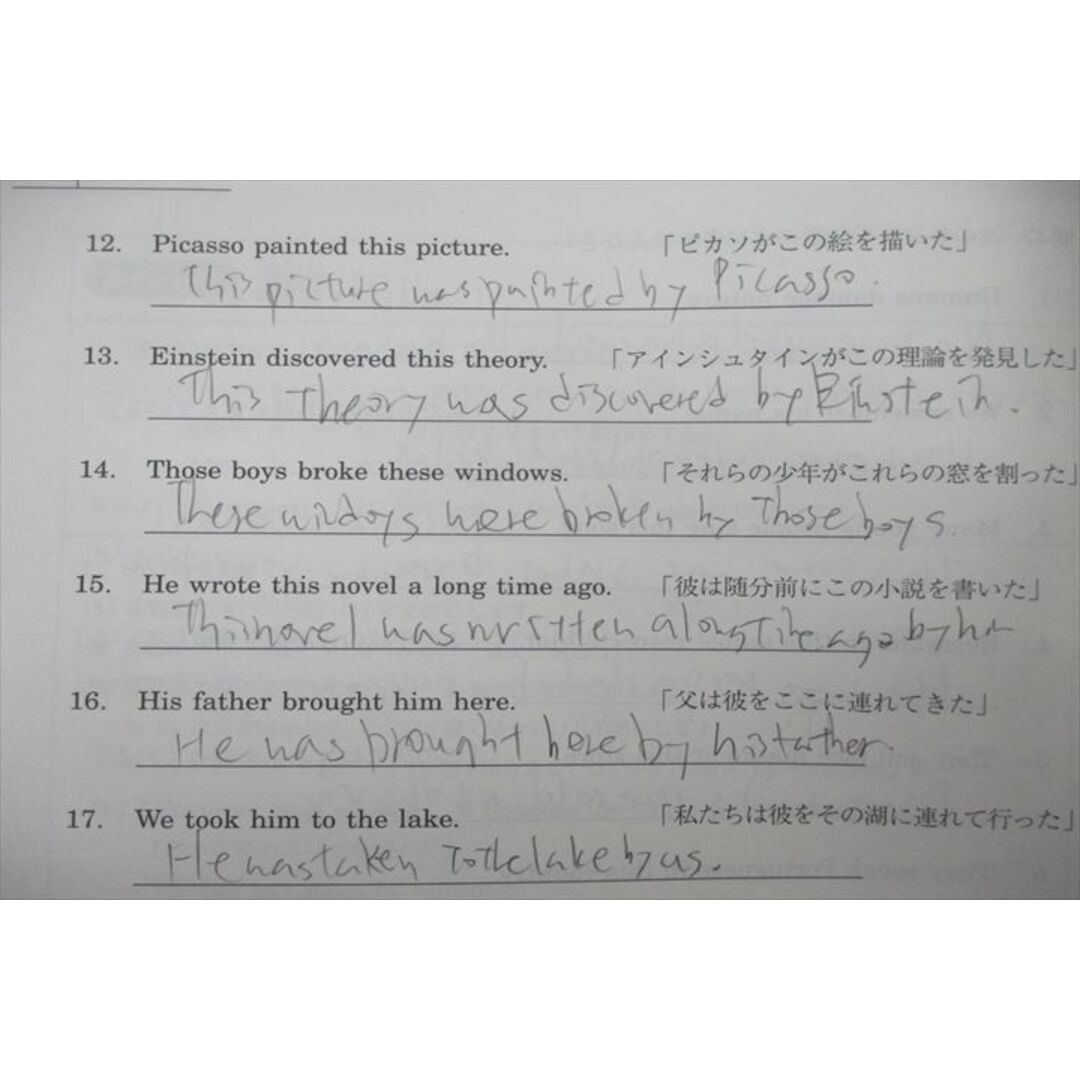 12. Picasso painted this picture. 「ピカソがこの絵を描いた」
This picture was painted by Picasso.
13. Einstein discovered this theory. 「アインシュタインがこの理論を発見した」
This theory was discovered by Einstein.
14. Those boys broke these windows. 「それらの少年がこれらの窓を割った」
These windoys were broken by those boys
15. He wrote this novel a long time ago. 「彼は随分前にこの小説を書いた」
This novel was written a long time ago by him
16. His father brought him here. 「父は彼をここに連れてきた」
He was brought here by his father.
17. We took him to the lake. 「私たちは彼をその湖に連れて行った」
He was taken to the lake by us.